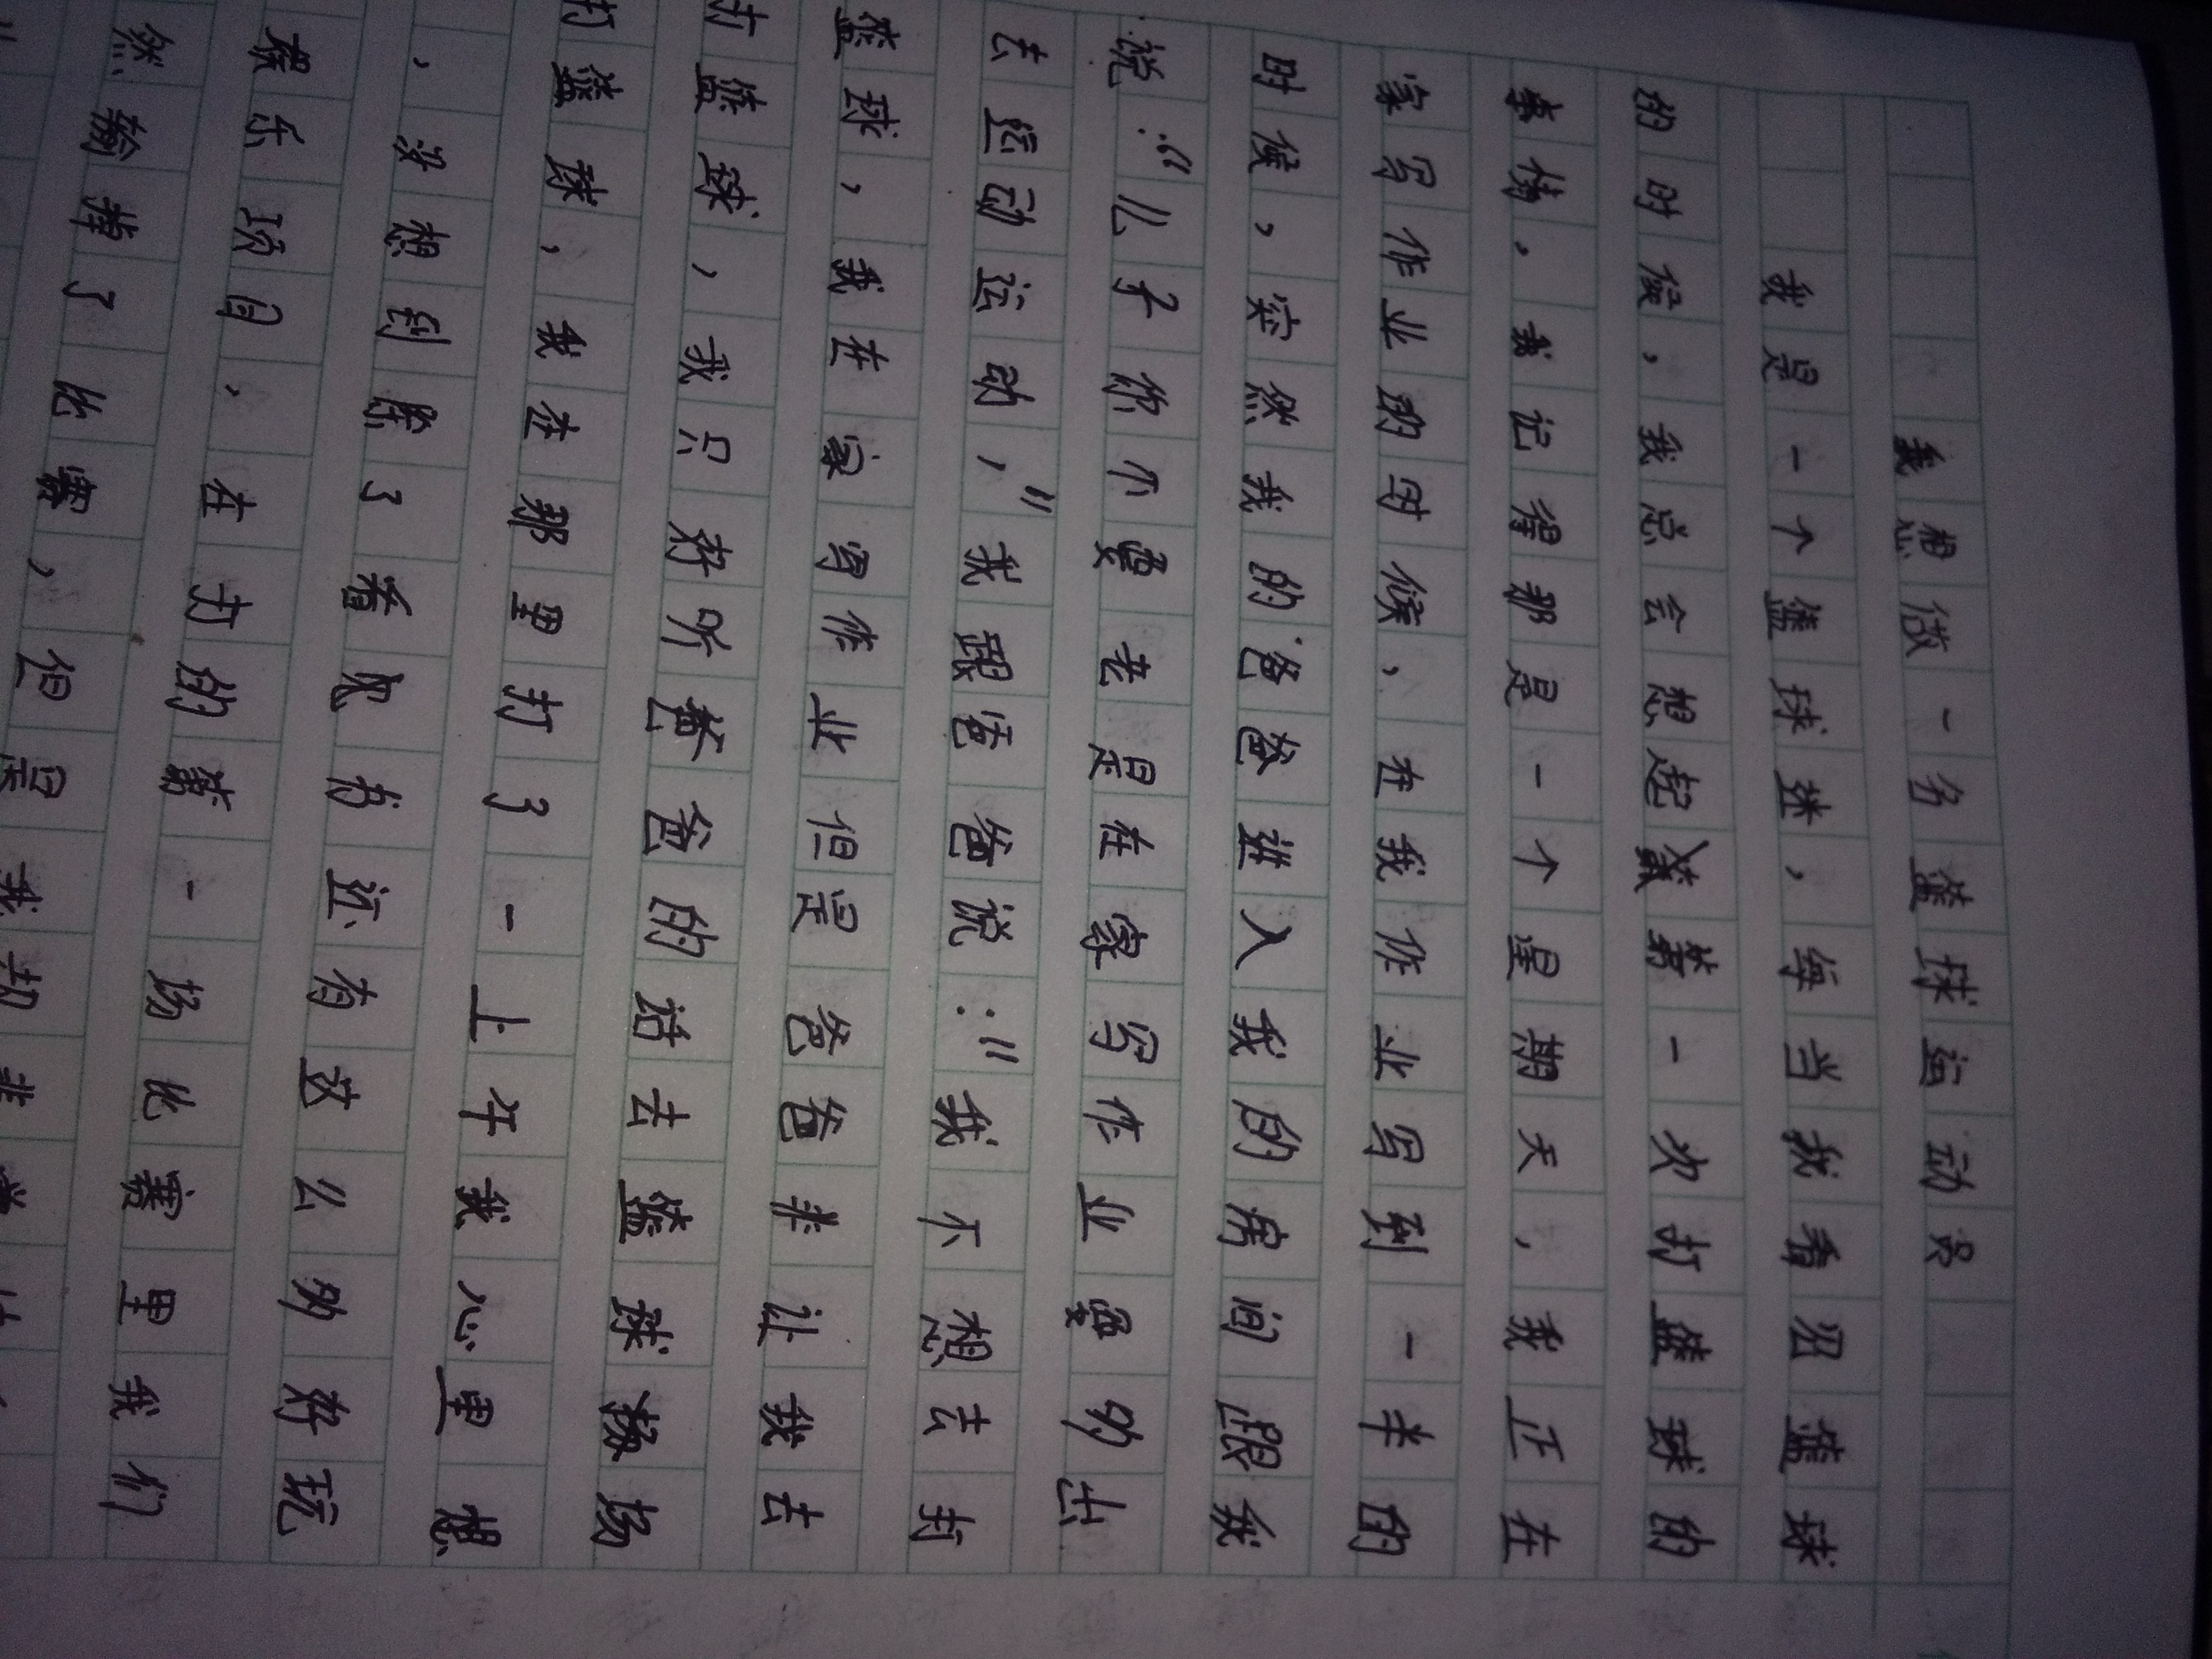 我想做一名篮球运动员
我是一个篮球迷，每当我看见篮球
的时候，我总会想起第一次打篮球的
事情，我记得那是一个星期天，我正在
家写作业的时候，在我作业写到一半的
时候，突然我的爸爸进入我的房间跟我
说：“儿子你不要老是在家写作业要多出
去运动运动，”我跟爸爸说：“我不想去打
篮球，我在家写作业但是爸爸非让我去
打篮球，我只好听爸爸的话去篮球场
打篮球，我在那里打了一上午我心里想
，没想到除了看书还有这么多好玩
娱乐项目，在打的第一场比赛里我们
然输掉了比赛，但是我却非常